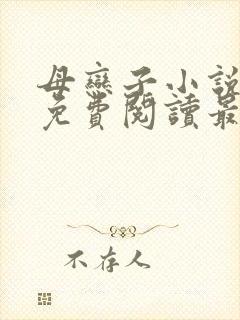 母戀子小說
免費閱讀最
不存人